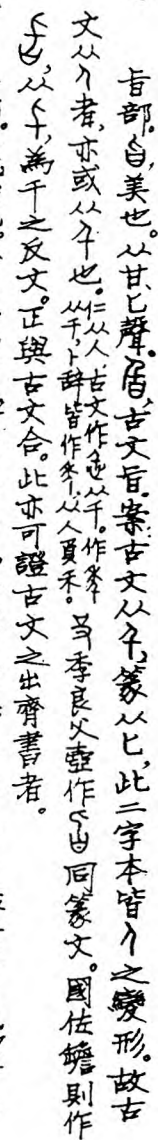 旨部。𣅀,美也。从甘匕聲。𠤔,古文旨。案古文从千,篆从匕,此二字本皆人之變形。故古
文从人者,亦或从千也。仁从人古文作忎从千。作秊从千,卜辭皆作秂,从人負禾。殳季良父壺作同篆文。國佐𦉜則作
从千,為千之反文。正與古文合。此亦可證古文之出齊書者。